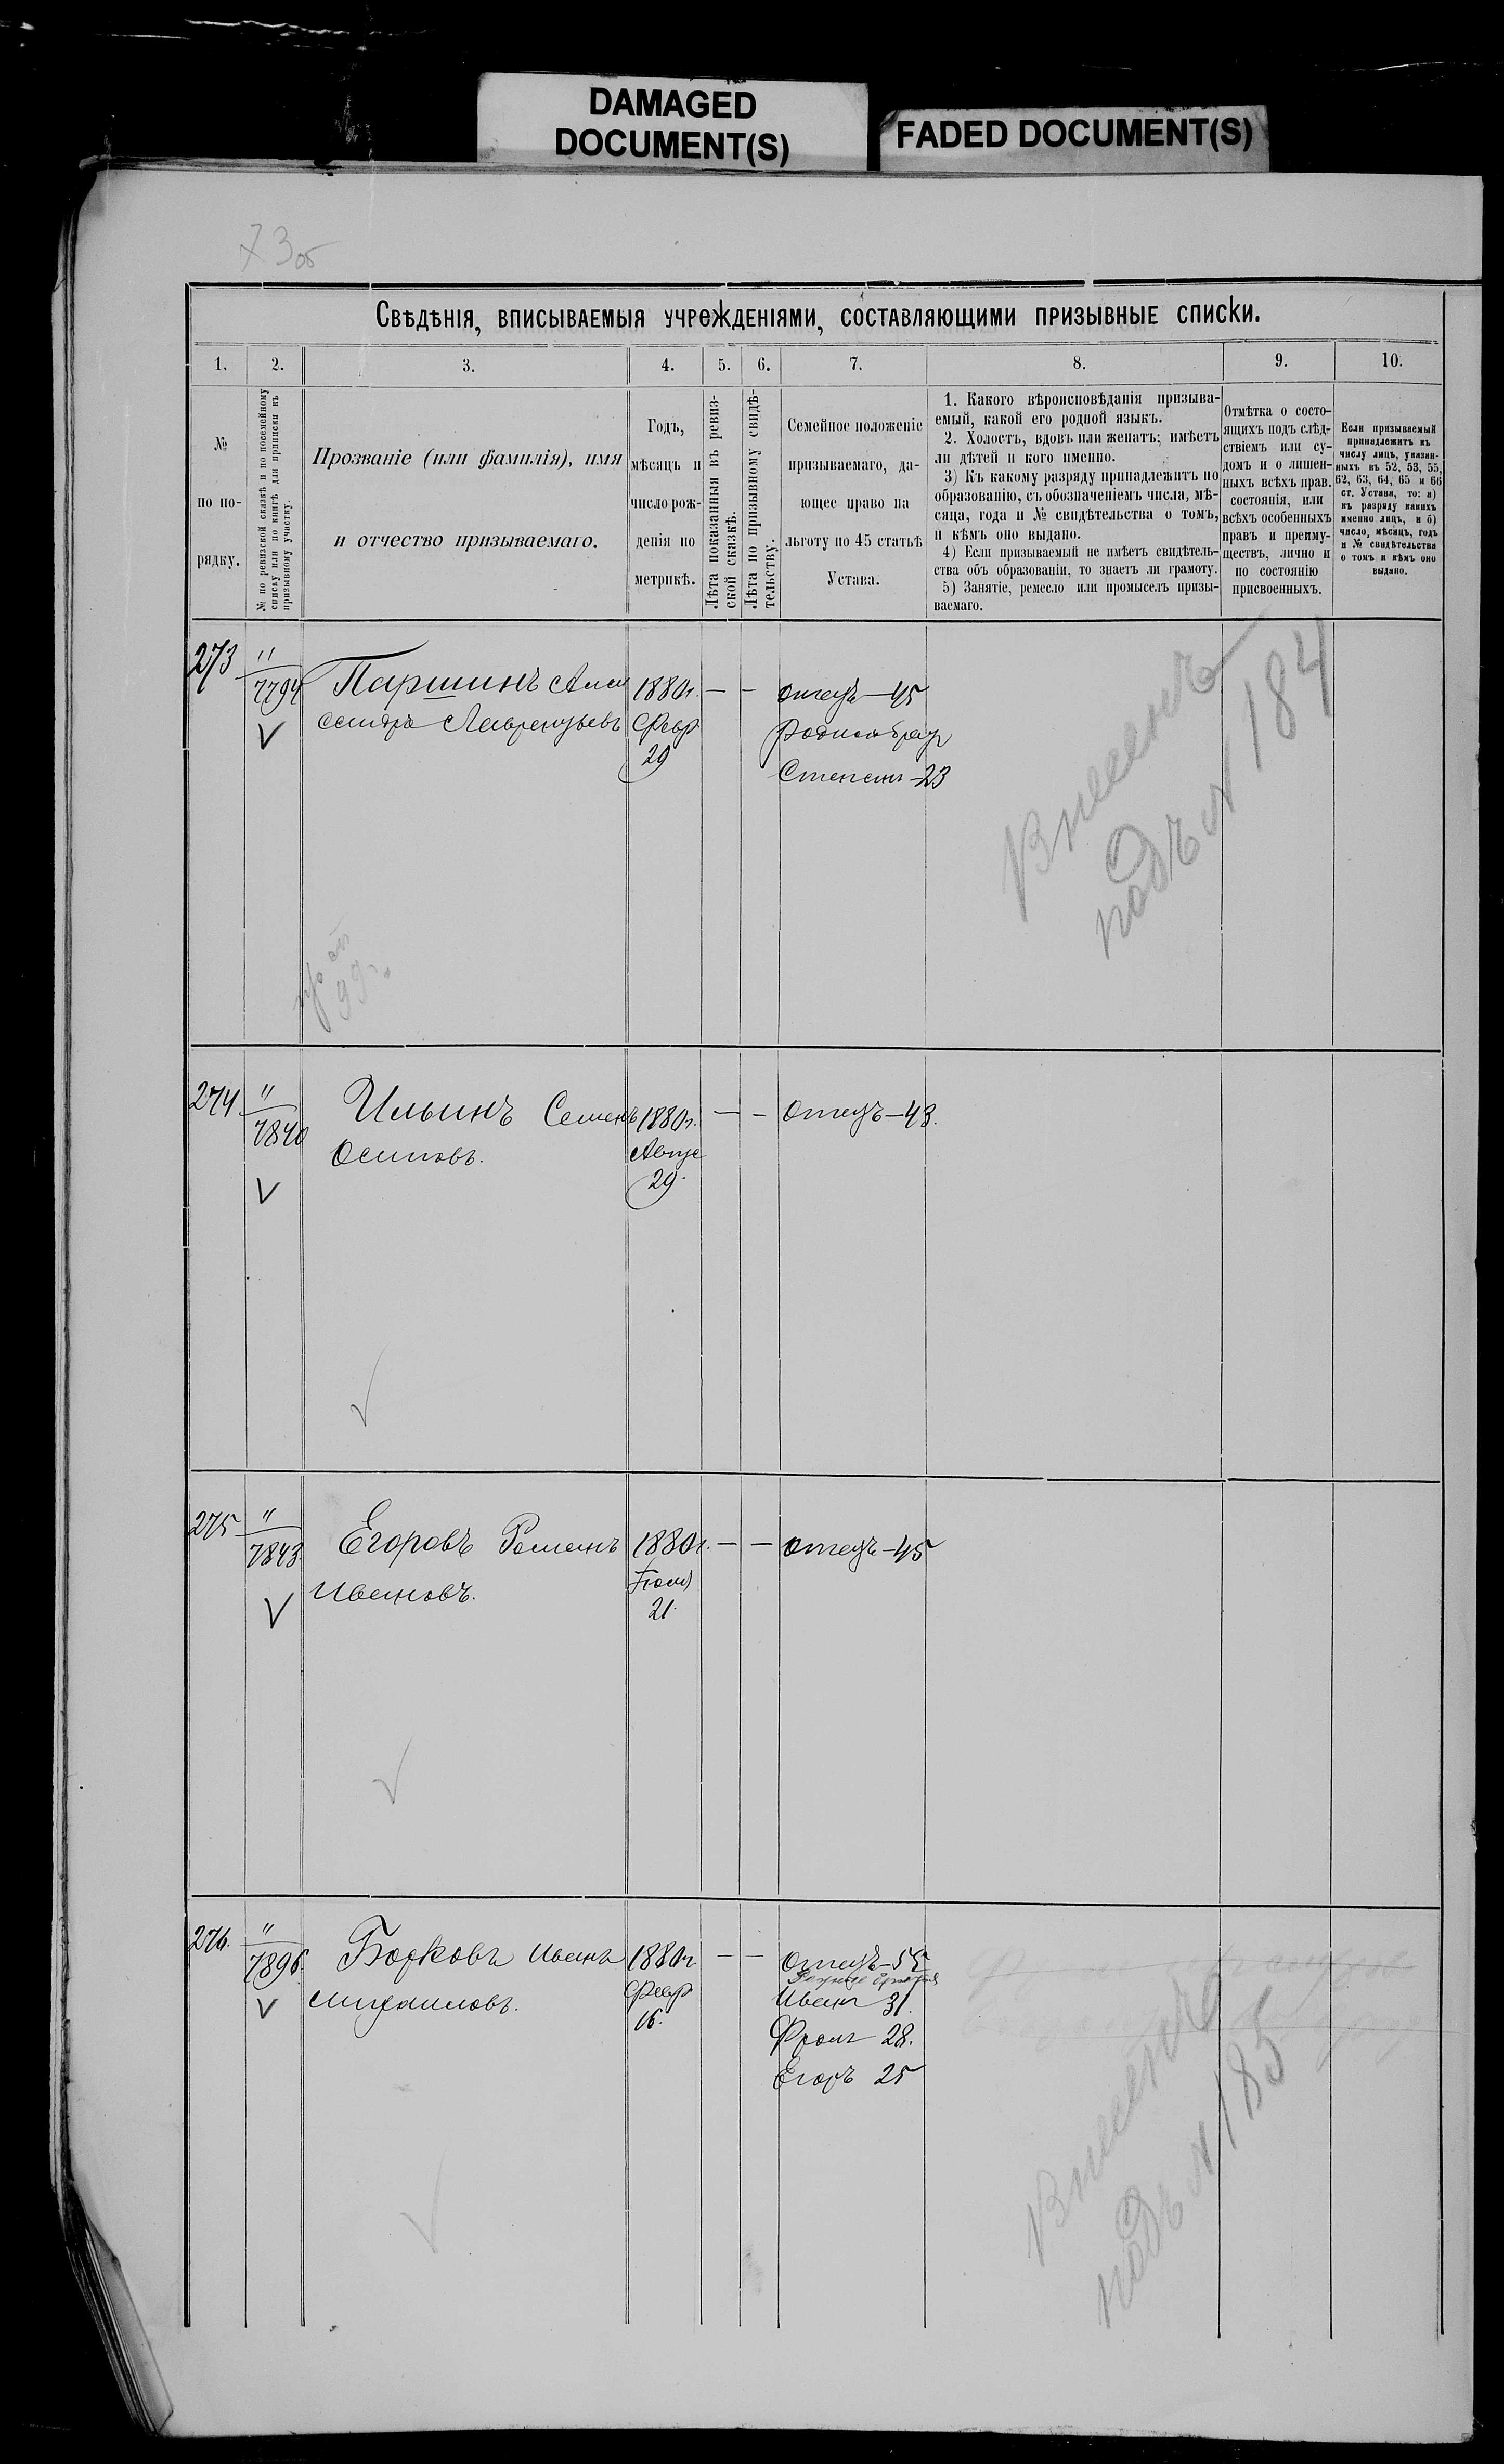 DAMAGED
DOCUMENT(S)
FADED DOCUMENT(S)
73об
Свѣдѣнія, вписываемыя учрежденіями, составляющими призывные списки.
1. 2. 3. 4. 5. 6. 7. 8. 9. 10.
№
по по-
рядку.
№ по ревизской сказкѣ и по посемейному
списку или по книгѣ для приписки къ
призывному участку.
Прозваніе (или фамилія), имя
и отчество призываемаго.
Годъ,
мѣсяцъ и
число рож-
денія по
метрикѣ.
Лѣта показанныя въ ревиз-
ской сказкѣ.
Лѣта по призывному свидѣ-
тельству.
Семейное положеніе
призываемаго, да-
ющее право на
льготу по 45 статьѣ
Устава.
1. Какого вѣроисповѣданія призыва-
емый, какой его родной языкъ.
2. Холостъ, вдовъ или женатъ; имѣетъ
ли дѣтей и кого именно.
3) Къ какому разряду принадлежитъ по
образованію, съ обозначеніемъ числа, мѣ-
сяца, года и № свидѣтельства о томъ,
и кѣмъ оно выдано.
4) Если призываемый не имѣетъ свидѣтель-
ства объ образованіи, то знаетъ ли грамоту.
5) Занятіе, ремесло или промыселъ призы-
ваемаго.
Отмѣтка о состо-
ящихъ подъ слѣд-
ствіемъ или су-
домъ и о лишен-
ныхъ всѣхъ прав.
состоянія, или
всѣхъ особенныхъ
правъ и преиму-
ществъ, лично и
по состоянію
присвоенныхъ.
Если призываемый
принадлежитъ къ
числу лицъ, указан-
ныхъ въ 52, 53, 55,
62, 63, 64, 65 и 66
ст. Устава, то: а)
къ разряду какихъ
именно лицъ, и б)
число, мѣсяцъ, годъ
и № свидѣтельства
о томъ и кѣмъ оно
выдано.
273 " Паршинъ Алек 1880г. — — отецъ—45
7794 сандръ Лаврентьевъ Февр родной братъ
29 Степанъ—23
Внесенъ
подъ № 184
99г.
274 " Ильинъ Семенъ 1880г. — — отецъ—43.
7840 Осиповъ. Авгус
29.
275 " Егоровъ Романъ 1880г. — — отецъ—45
7843. Ивановъ.
21.
276. " Борковъ Иванъ 1880г. — — отецъ—55
7896. Михаиловъ. Февр
16.
Иванъ 31.
Фролъ 28.
Егоръ 25
Внесенъ
подъ № 185